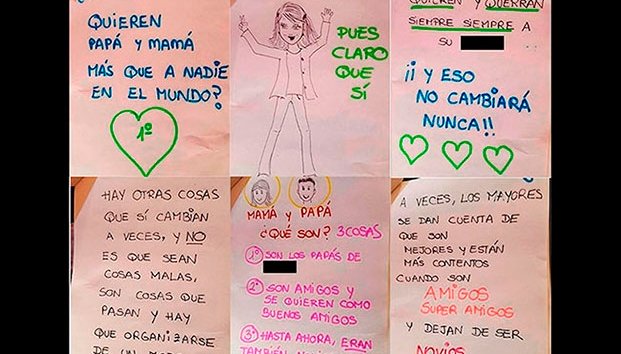 QUIEREN
PAPÁ Y MAMÁ
MÁS QUE A NADIE
EN EL MUNDO?
1º
PUES
CLARO
QUE
SÍ
QUIEREN Y QUERRÁN
SIEMPRE SIEMPRE A
SU
¡¡ Y ESO
NO CAMBIARÁ
NUNCA!!
HAY OTRAS COSAS
QUE SÍ CAMBIAN
A VECES, Y NO
ES QUE SEAN
COSAS MALAS,
SON COSAS QUE
PASAN Y HAY
QUE ORGANIZARSE
DE UN
MAMÁ Y PAPÁ
¿QUÉ SON? 3 COSAS
1º SON LOS PAPÁS DE
2º SON AMIGOS Y
SE QUIEREN COMO
BUENOS AMIGOS
3º HASTA AHORA, ERAN
TAMBIÉN
A VECES, LOS MAYORES
SE DAN CUENTA DE
QUE SON
MEJORES Y ESTÁN
MÁS CONTENTOS
CUANDO SON
AMIGOS
SUPER AMIGOS
Y DEJAN DE SER
NOVIOS